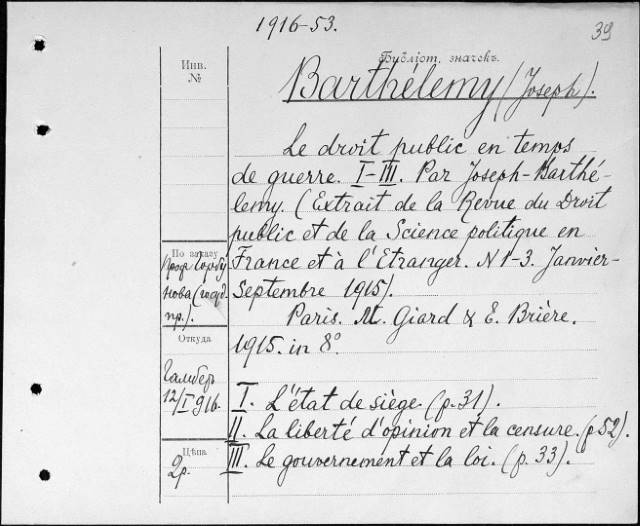 1916-53.
39
Библіот. значекъ.
Инв.
№
Barthélemy (Joseph).
Le droit public en temps
de guerre. I-III. Par Joseph-Barthé-
lemy. (Extrait de la Revue du Droit
public et de la Science politique en
France et à l'Etranger. N 1-3. Janvier-
Septembre 1915).
Paris. M. Giard & E. Brière.
1915. in 8°.
I. L'état de siège. (p. 31).
II. La liberté d'opinion et la censure. (p. 52).
III. Le gouvernement et la loi. (p. 33).
По заказу
проф. Горбу
нова (госуд.
пр.).
Откуда
Гамбер
12/I 916.
Цѣна
2р.